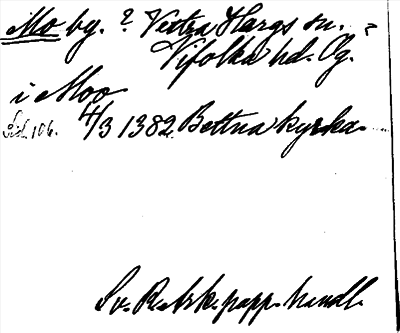 Mo by. ? Vestra Hargs sn. ?
Vifolka hd. Ög.
i Moo
Sid. 106. 4/3 1382 Bettna kyrka.
Sv. R. Ark. papp. handl.